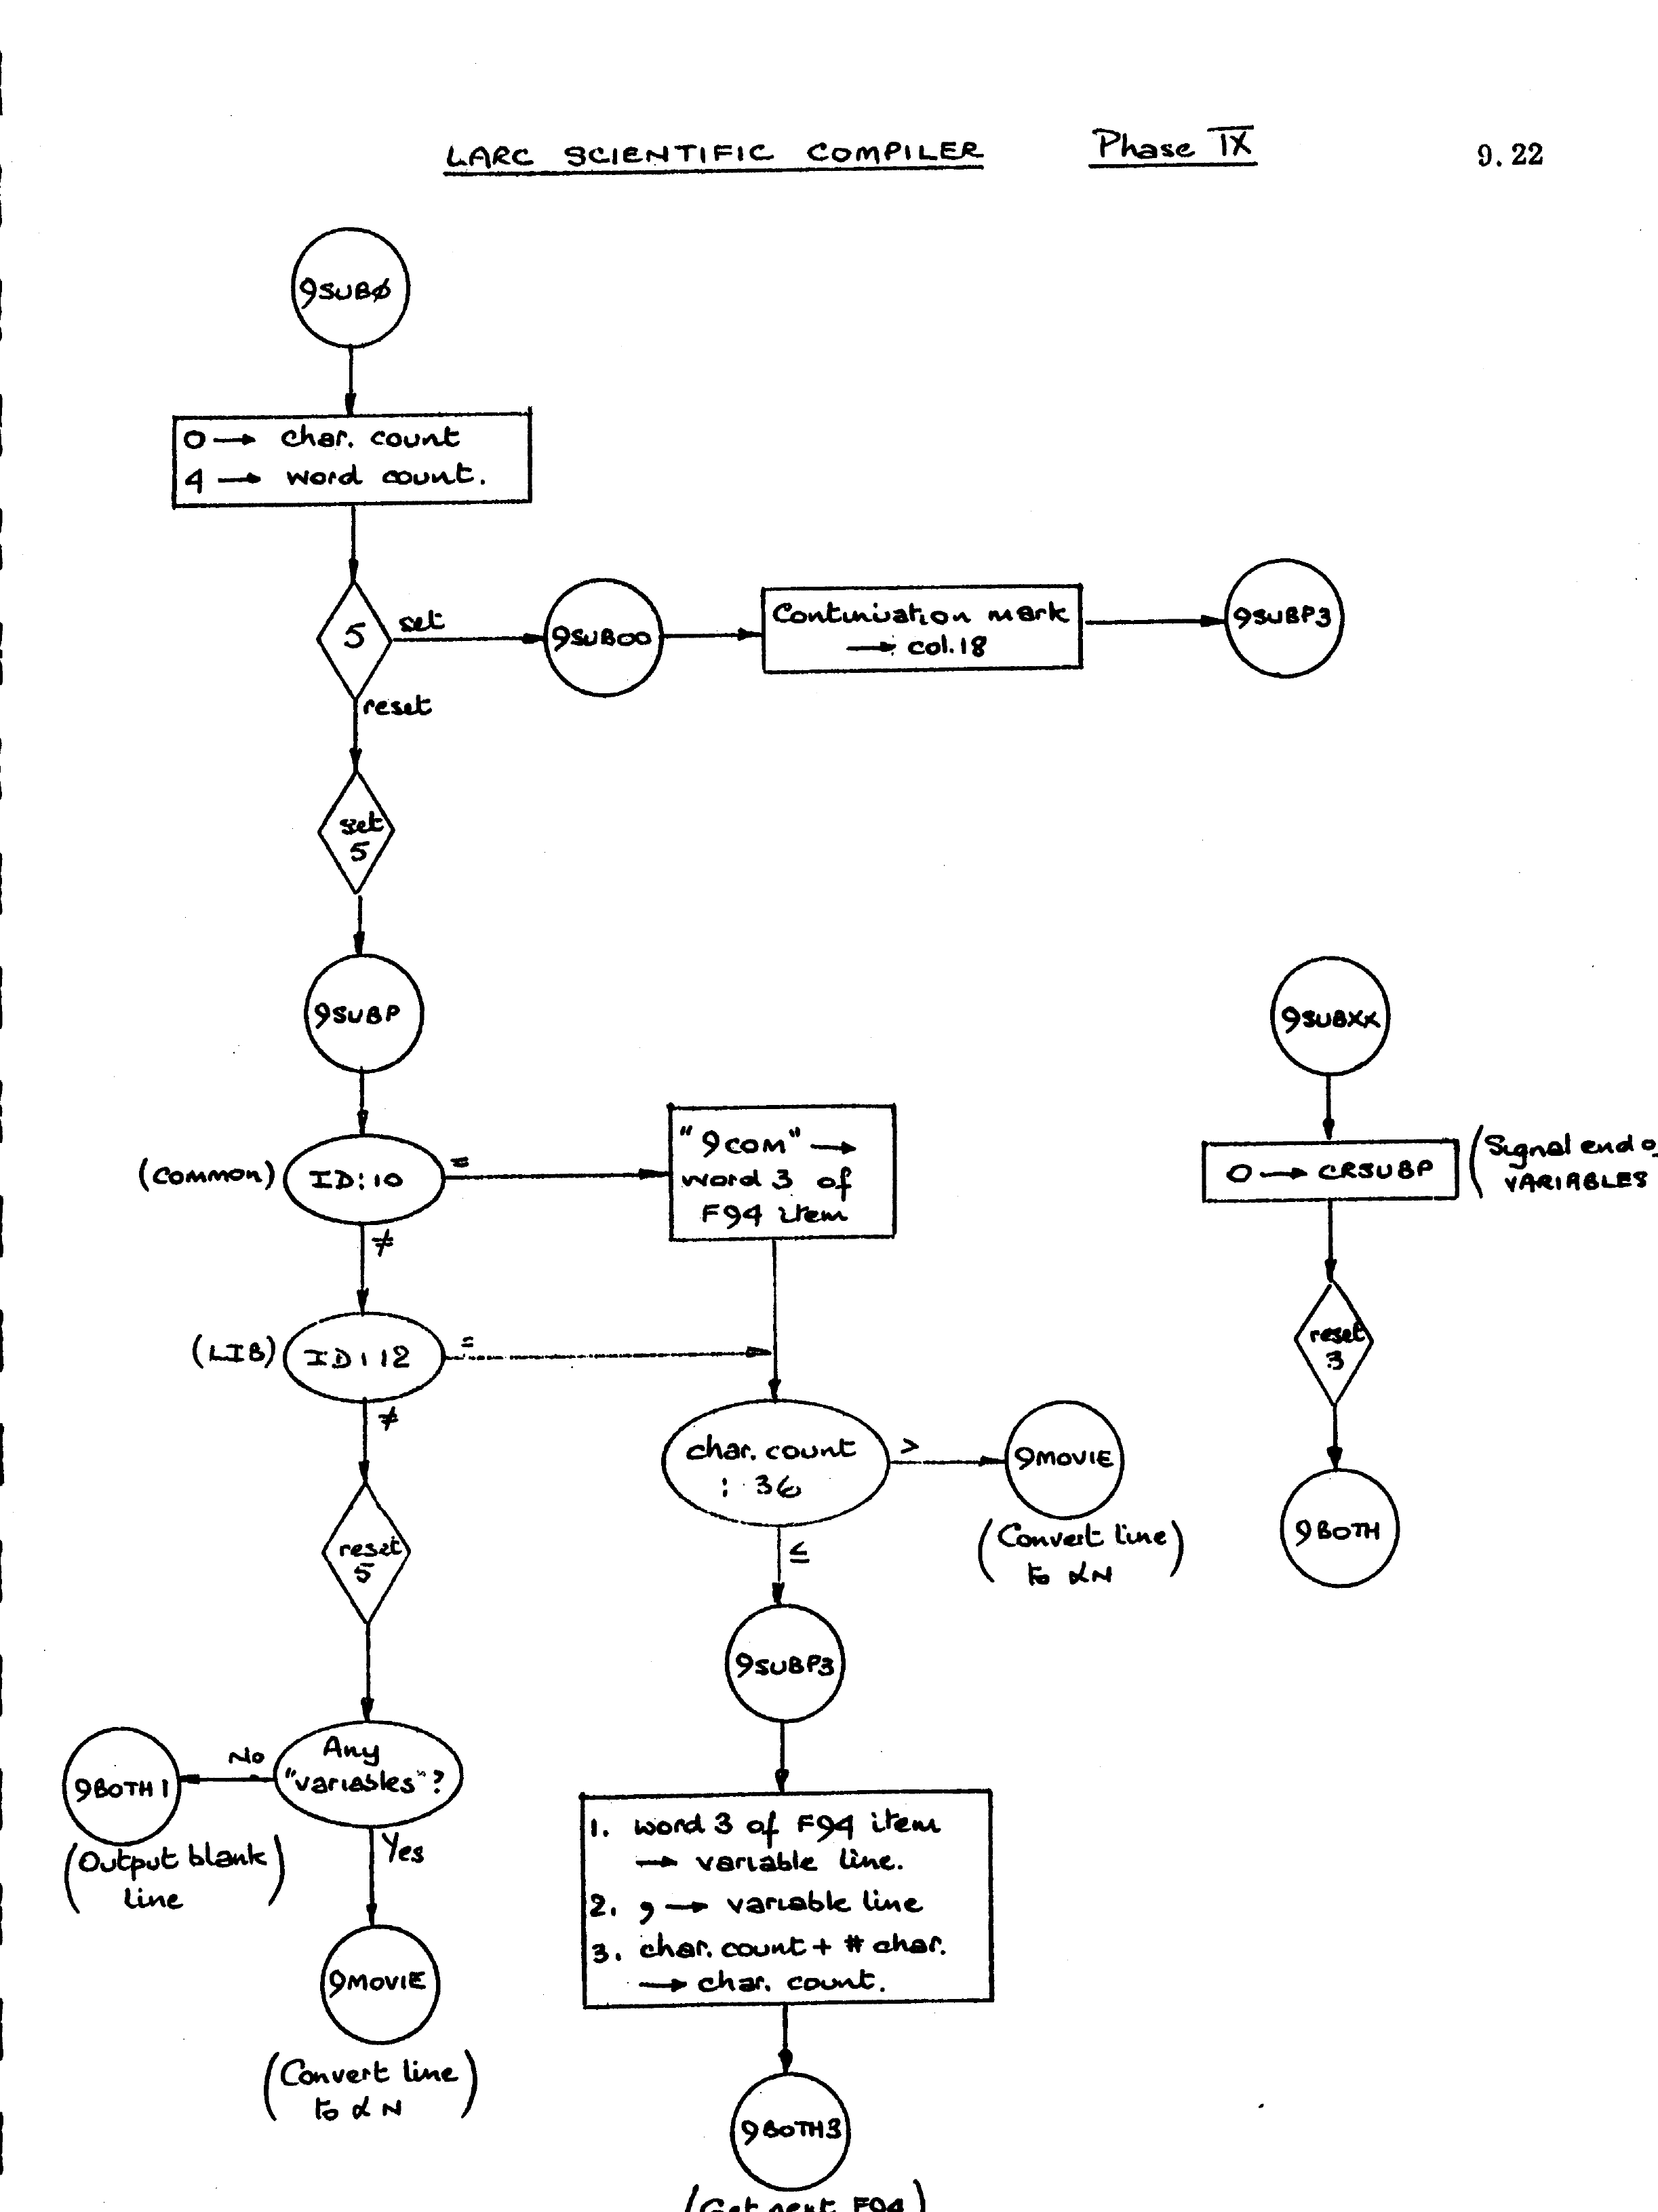 LARC SCIENTIFIC COMPILER Phase IX 9.22
9SUBØ
0 → char. count
4 → word count.
5
set
9SUB00
Continuation mark
→ col.18
9SUBP3
reset
set
5
9SUBP
(COMMON)
ID:10
=
"9COM" →
word 3 of
F94 item
≠
(LIB)
ID:12
=
≠
char. count
: 36
>
9MOVIE
(Convert line
to αN)
≤
reset
5
9SUBP3
Any
"variables"?
No
9BOTH1
(Output blank
line)
Yes
9MOVIE
(Convert line
to αN)
1. word 3 of F94 item
→ variable line.
2. , → variable line
3. char. count + # char.
→ char. count.
9BOTH3
(Get next F94)
9SUBXX
0 → CRSUBP
(Signal end o
VARIABLES
reset
3
9BOTH